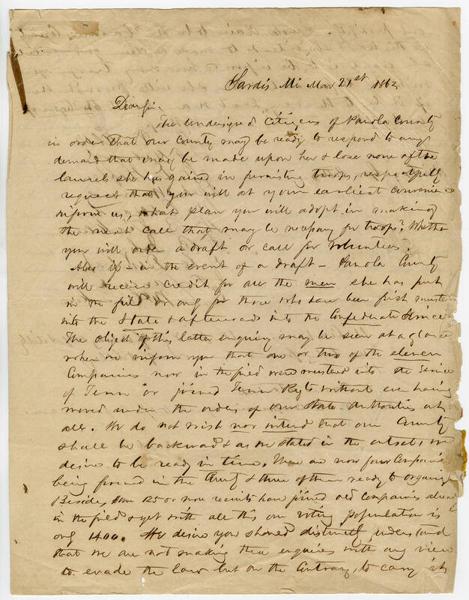 Sardis Mi Mar 21st 1862
Dear sir
The undersigned Citizens of Panola County
in order that our County may be ready to respond to any
demand that may be made upon her & lose none of the
laurels she has gained in furnishing troops, respectfully
request that you will at your earliest convenience
inform us, what plan you will adopt in making
the next call that may be necessary for troops? Whether
you will order a draft or call for volunteers.
Also if in the event of a draft Panola County
will receive credit for all the men she has put
in the field or only for those who have been first mustered
into the State & afterwards into the Confederate Service
The object of this latter enquiry may be seen at a glance
when we inform you that one or two of the eleven
Companies now in the field were mustered into the Service
of Tenn or joined Tenn Regts without ever having
moved under the orders of our State Authorities at
all. We do not wish nor intend that our County
shall be backward & as we stated in the outset, we
desire to be ready in time. There are now four Companies
being formed in the County & three of them ready to organize
Besides some 125 or more recruits have joined old Companies already
in the field & yet with all this our voting population is
only 1400. We desire you should distinctly understand
that we are not making these enquiries with any view
to evade the law but on the Contrary, to carry it